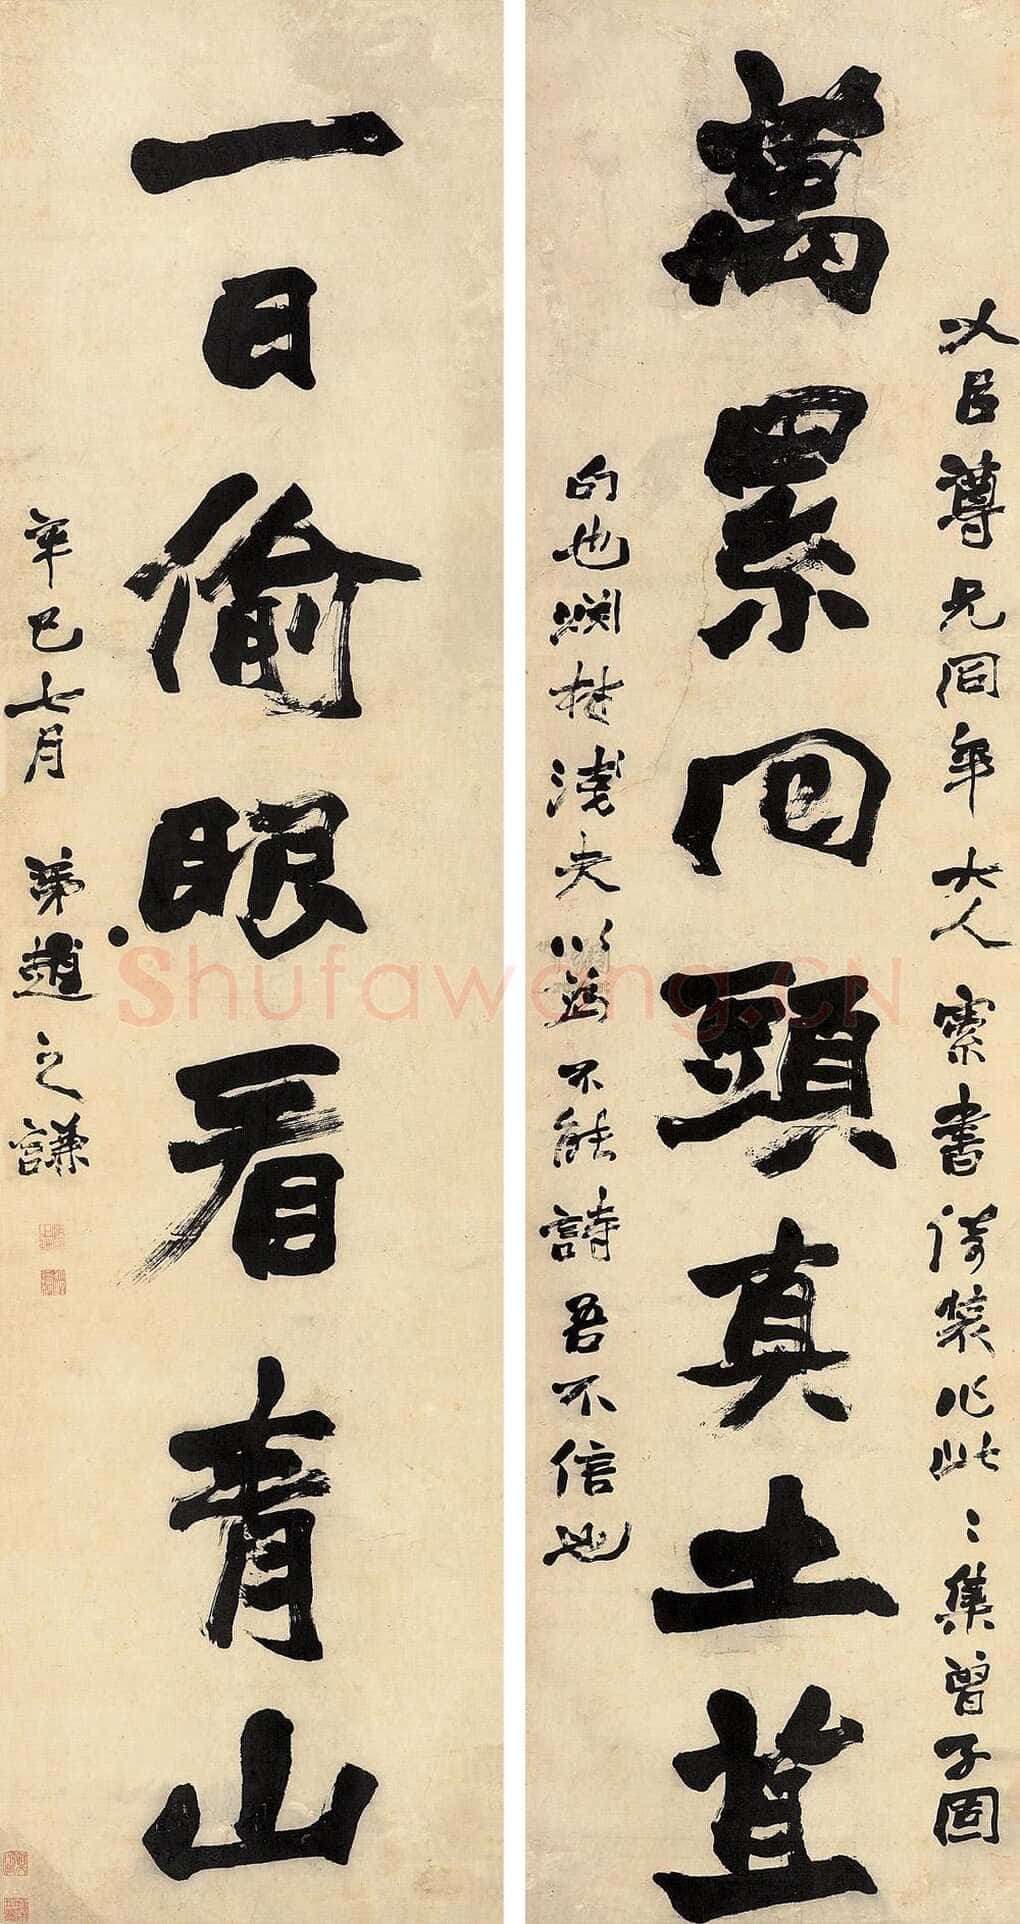 尊兄同年大人索書倚裝作此〻集曾子固
萬累回頭真土苴
句也淺夫以為不能詩吾不信也
一日偷眼看青山
辛巳七月 弟趙之謙
Shufawang.CN